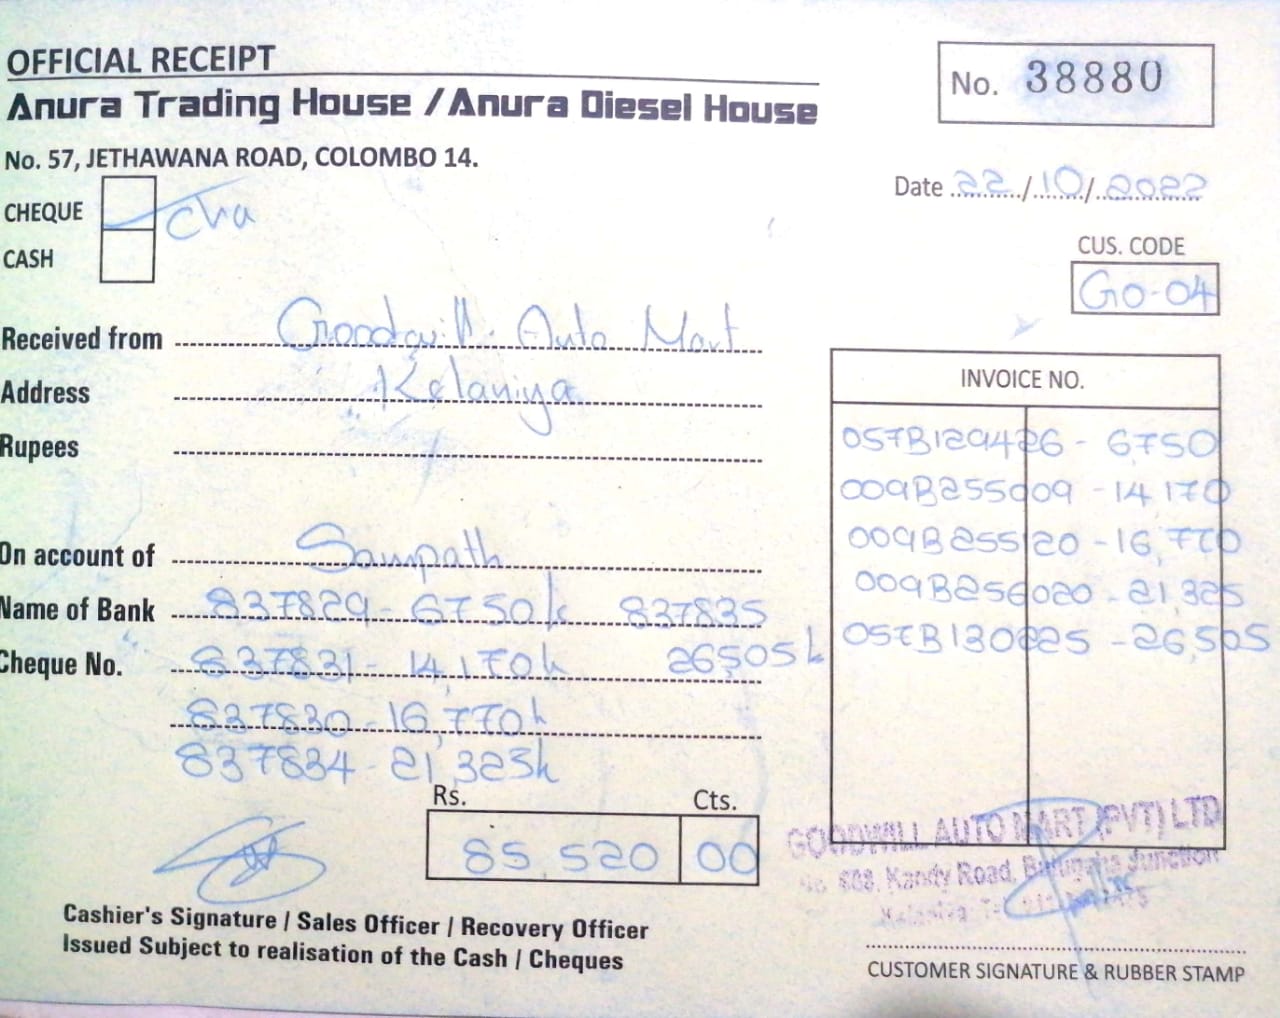 OFFICIAL RECEIPT
Anura Trading House / Anura Diesel House
No. 57, JETHAWANA ROAD, COLOMBO 14.
No. 38880
Date 22/10/2022
CHEQUE
CASH
CUS. CODE
GO-04
Received from Goodwill Auto Mart
Address Kelaniya
Rupees
On account of Sampath
Name of Bank 837829 - 6750/= 837835
Cheque No. 837831 - 14,170/= 26505/=
837830 - 16,770/=
837834 - 21,325/=
INVOICE NO.
057B129426 - 6,750
009B255009 - 14,170
009B255120 - 16,770
009B256020 - 21,325
057B130225 - 26,505
Rs. Cts.
85,520 00
GOODWILL AUTO MART (PVT) LTD
Kandy Road, Junction
Cashier's Signature / Sales Officer / Recovery Officer
Issued Subject to realisation of the Cash / Cheques
CUSTOMER SIGNATURE & RUBBER STAMP